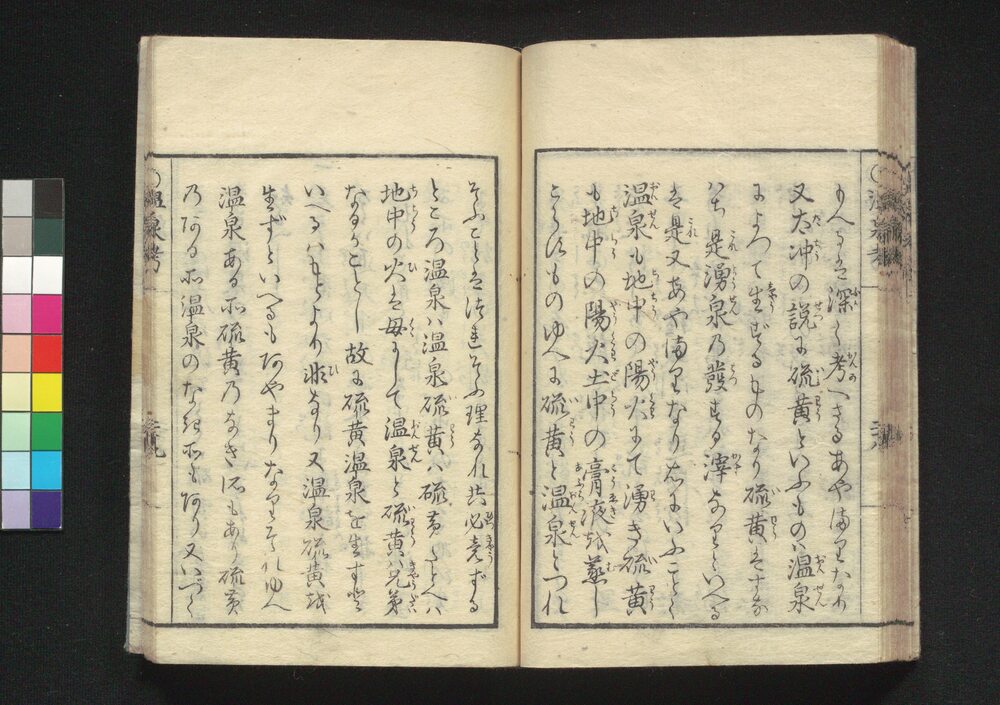 深く考へざるあやまりなり
又太冲の説に硫黄といふものハ温泉
によつて生ずるものなり硫黄ハすな
はち是湧泉の發する滓なりといへる
是又あやまりなり右にいふごとく
温泉も地中の陽火にて湧き硫黄
も地中の陽火土中の膏液を蒸し
こらすものゆへに硫黄と温泉とつれ
そふことはつれそふ理なれ共必竟ずる
ところ温泉ハ温泉硫黄ハ硫黄たとへハ
地中の火は母にして温泉と硫黄ハ兄弟
なるがごとし故に硫黄温泉を生ずと
いへるハもとより非なり又温泉硫黄を
生ずといへるもあやまりなりそれゆへ
温泉ある所硫黄のなき所もあり硫黄
のある所温泉のなき所もあり又いづく
温泉考
温泉考